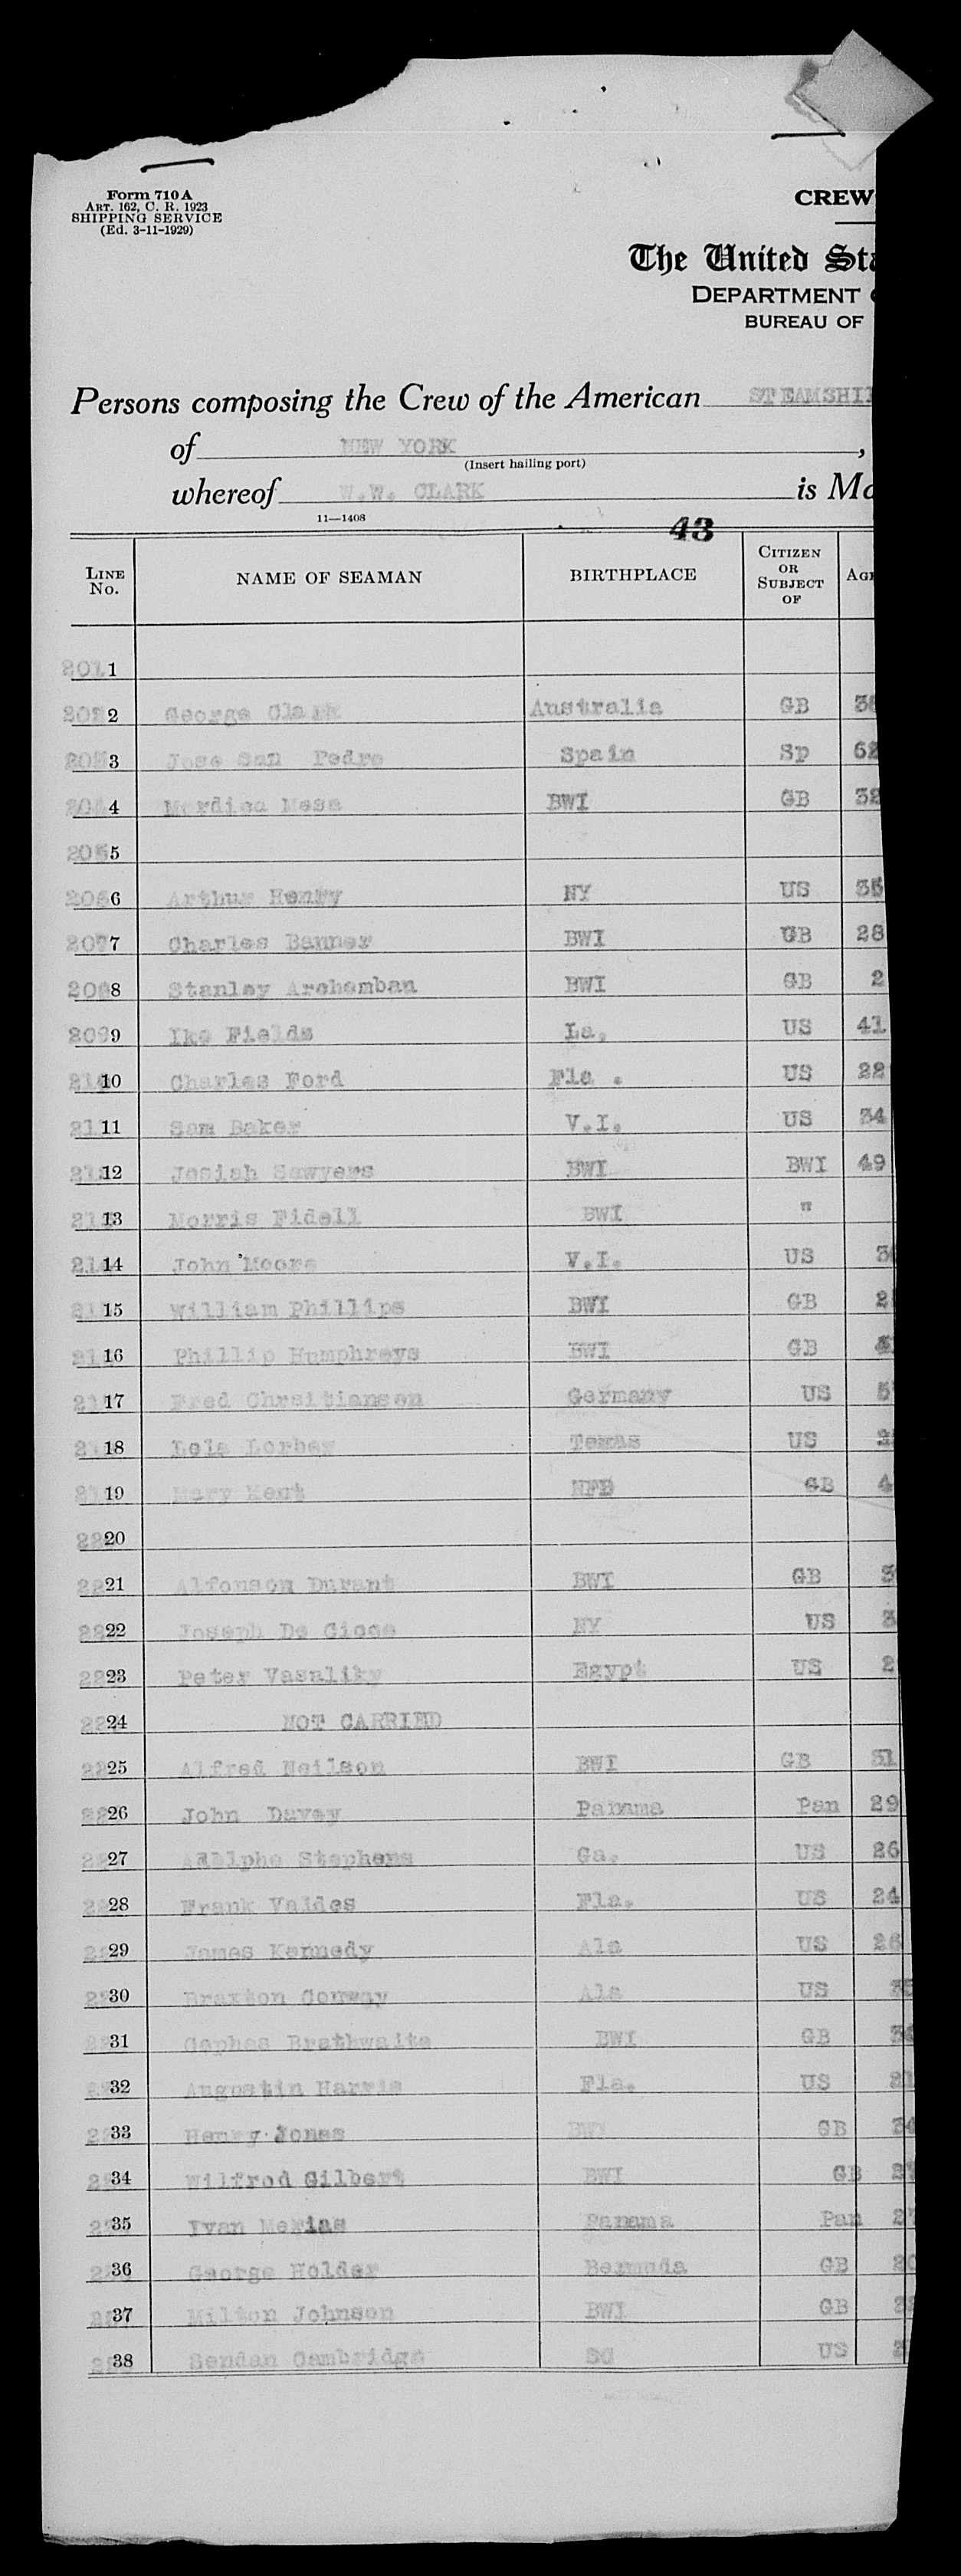 Form 710 A
ART. 162, C. R. 1923
SHIPPING SERVICE
(Ed. 3-11-1929)
CREW
The United Sta
DEPARTMENT
BUREAU OF
Persons composing the Crew of the American STEAMSHI
of NEW YORK ,
(Insert hailing port)
whereof W.W. CLARK is Ma
11—1408
43
LINE No. NAME OF SEAMAN BIRTHPLACE CITIZEN OR SUBJECT OF AGE
201 1
2 George Clark Australia GB
3 Jose San Pedro Spain Sp 62
4 Mordica Mesa BWI GB 32
205 5
6 Arthur Henry NY US 35
207 7 Charles Banner BWI GB 28
208 8 Stanley Archamban BWI GB 2
209 9 Ike Fields La. US 41
10 Charles Ford Fla . US 22
211 11 Sam Baker V.I. US 34
12 Josiah Sawyers BWI BWI 49
13 Morris Fidell BWI "
214 14 John Moore V.I. US 3
15 William Phillips BWI GB 2
16 Phillip Humphreys BWI GB 4
17 Fred Chrsitiansen Germany US 5
18 Lola Lorber Texas US
19 Mary Kent NFD GB 4
20
21 Alfonson Durant BWI GB 3
22 Joseph De Cicco NY US 3
23 Peter Vasaliky Egypt US 2
24 NOT CARRIED
25 Alfred Neilson BWI GB 31
26 John Davey Panama Pan 29
27 Adolphe Stephens Ga. US 26
28 Frank Valdes Fla. US 24
29 James Kennedy Ala US 26
30 Braxton Conway Ala US
31 Cephas Brathwaite BWI GB
32 Augustin Harris Fla. US
33 Henry Jones BWI GB 34
34 Wilfred Gilbert BWI GB
35 Ivan Mexias Panama Pan
36 George Holder Bermuda GB 20
37 Milton Johnson BWI GB
38 Sendan Cambridge SC US